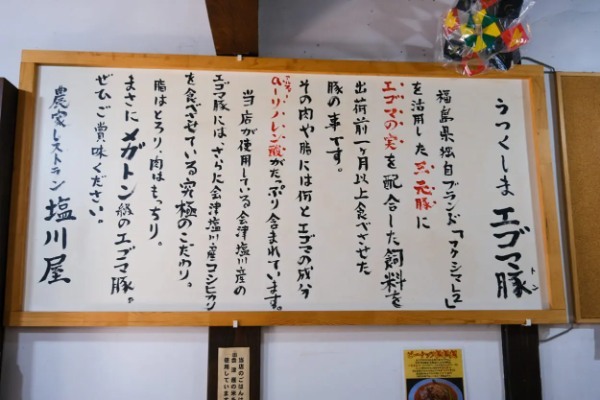 うつくしまエゴマ豚
トン
福島県独自ブランド「フクシマL2」
を活用した三元豚に
エゴマの実を配合した飼料を
出荷前一ヶ月以上食べさせた
豚の事です。
その肉や脂には何とエゴマの成分
α-リノレン酸がたっぷり含まれています。
アルファー
当店が使用している会津塩川産の
エゴマ豚には、さらに会津塩川産コシヒカリ
を食べさせている究極のこだわり。
脂はとろり、肉はもっちり。
まさにメガトン級のエゴマ豚。
ぜひご賞味ください。
農家レストラン 塩川屋
当店のごはんは